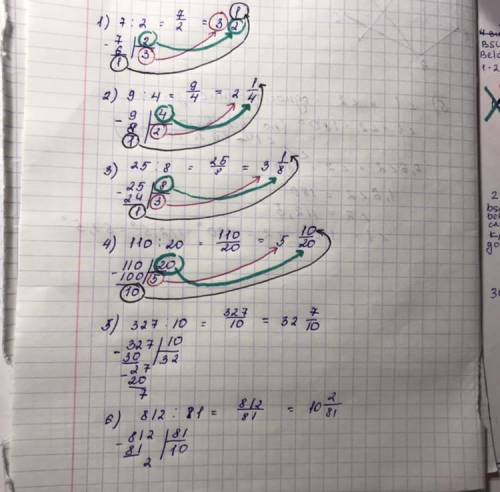 1) 7 : 2 = 7/2 = 3 1/2
- 7 | 2
6 | 3
1
2) 9 : 4 = 9/4 = 2 1/4
- 9 | 4
8 | 2
1
3) 25 : 8 = 25/8 = 3 1/8
- 25 | 8
24 | 3
1
4) 110 : 20 = 110/20 = 5 10/20
- 110 | 20
100 | 5
10
5) 327 : 10 = 327/10 = 32 7/10
- 327 | 10
30 | 32
- 27
20
7
6) 812 : 81 = 812/81 = 10 2/81
- 812 | 81
81 | 10
2